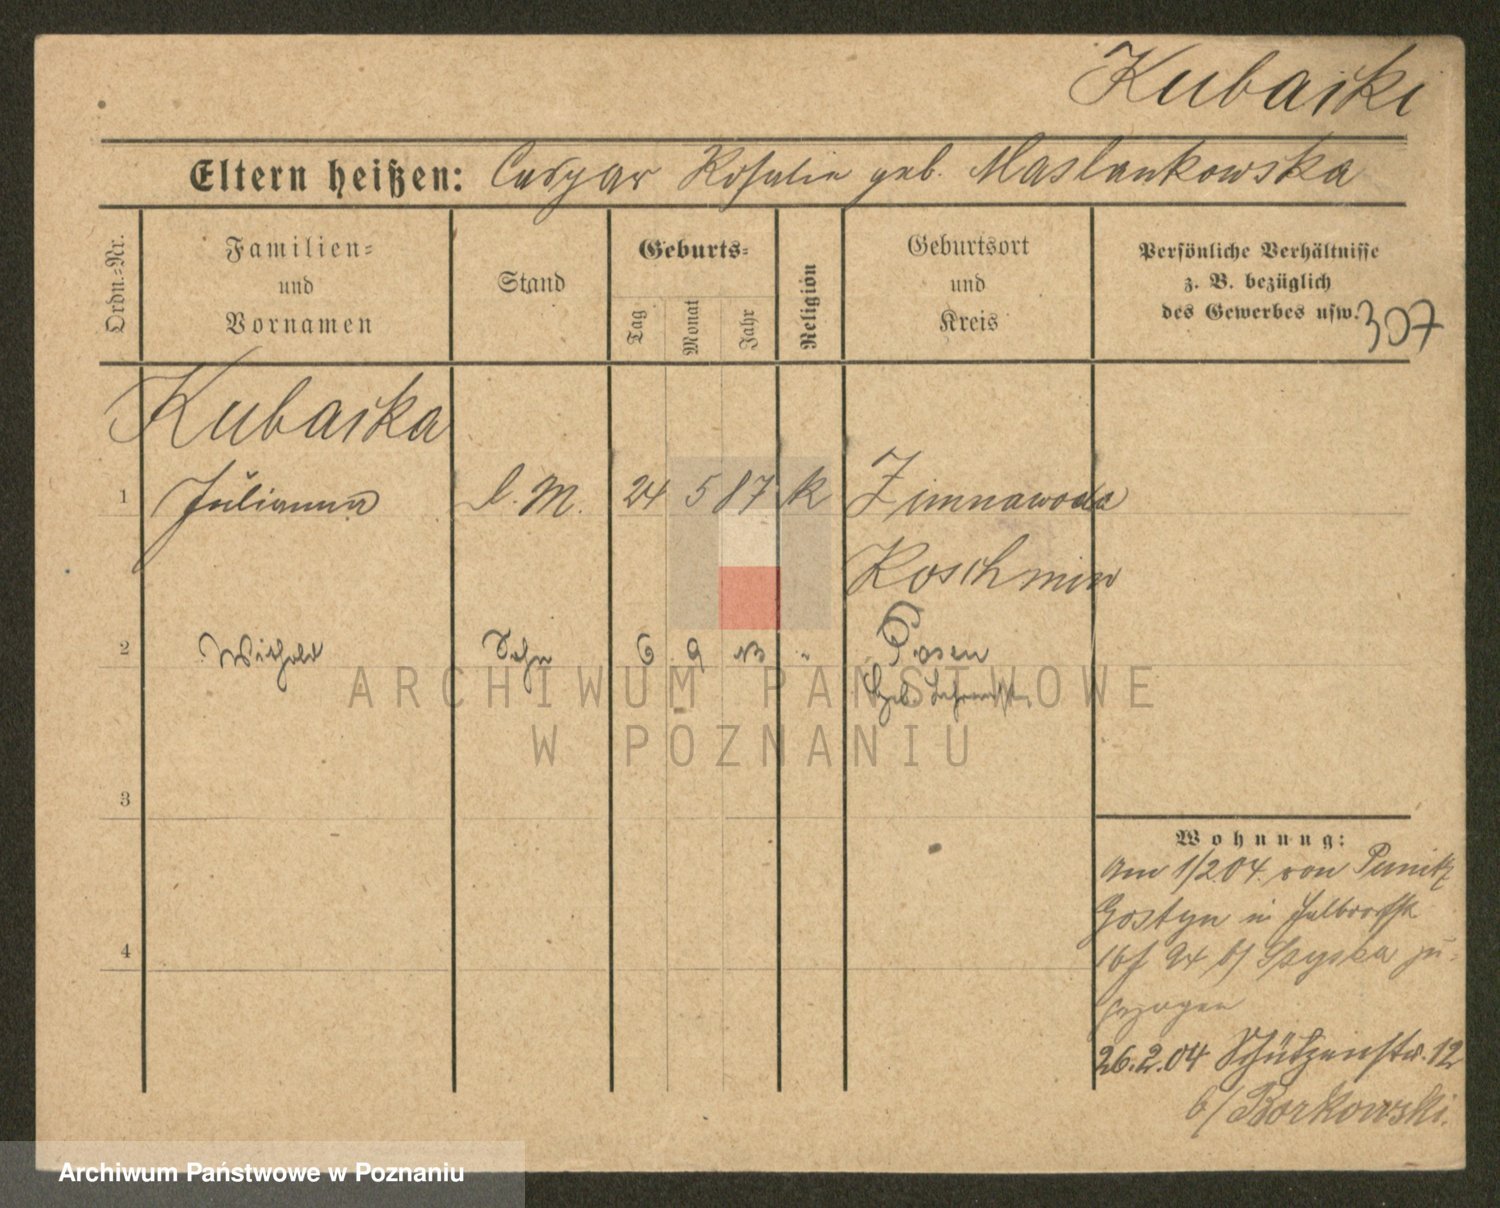 Kubaski
Eltern heißen: Caspar Rosalie geb. Maslankowska
Ordn.=Nr.
Familien=
und
Vornamen
Stand
Geburts=
Tag
Monat
Jahr
Religion
Geburtsort
und
Kreis
Persönliche Verhältnisse
z. B. bezüglich
des Gewerbes usw.
307
Kubaska
1 Julianna l. M. 24 5 87 k Zimnawoda
Koschmin
2 Withold Sohn 6 9 Posen
3
4
Wohnung:
Am 1/2.04. von Punitz
Gostyn in
b/ zu=
gezogen
26.2.04 Schützenstr. 12
b/ Borkowski.
ARCHIWUM PAŃSTWOWE
W POZNANIU
Archiwum Państwowe w Poznaniu